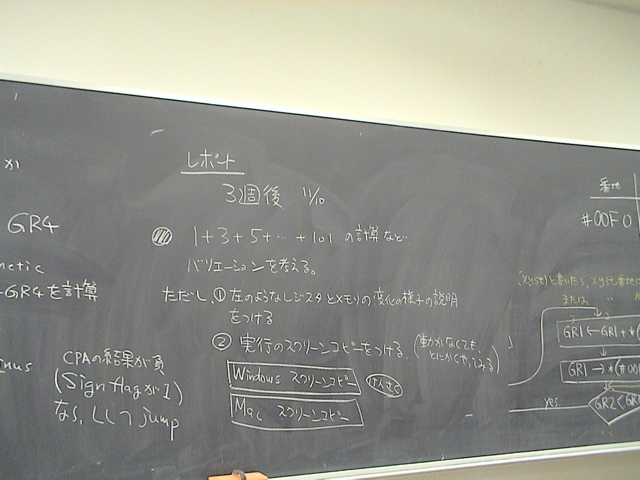 レポート
3週後 11/10
1+3+5+…+101 の計算など…
バリエーションを考える。
ただし、①左のようなレジスタとメモリの変化の様子の説明
をつける
②実行のスクリーンコピーをつける。(動かなくても、
とにかくやってみる)
Windows スクリーンコピー
けんさく
Mac スクリーンコピー
か
GR4
netic
GR4を計算
CPAの結果が負
(Sign flagが1)
なら, Lしに jump
番地
#00F0
または
GR1 ← GR1 + *(
GR1 → *(#00
yes
GR2 < GR